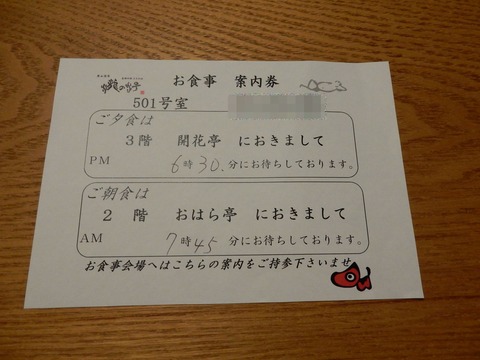 お食事 案内券
501号室
ご夕食は
3階 開花亭 におきまして
PM 6時30.分にお待ちしております。
ご朝食は
2 階 おはら亭 におきまして
AM 7時45分にお待ちしております。
お食事会場へはこちらの案内をご持参下さいませ